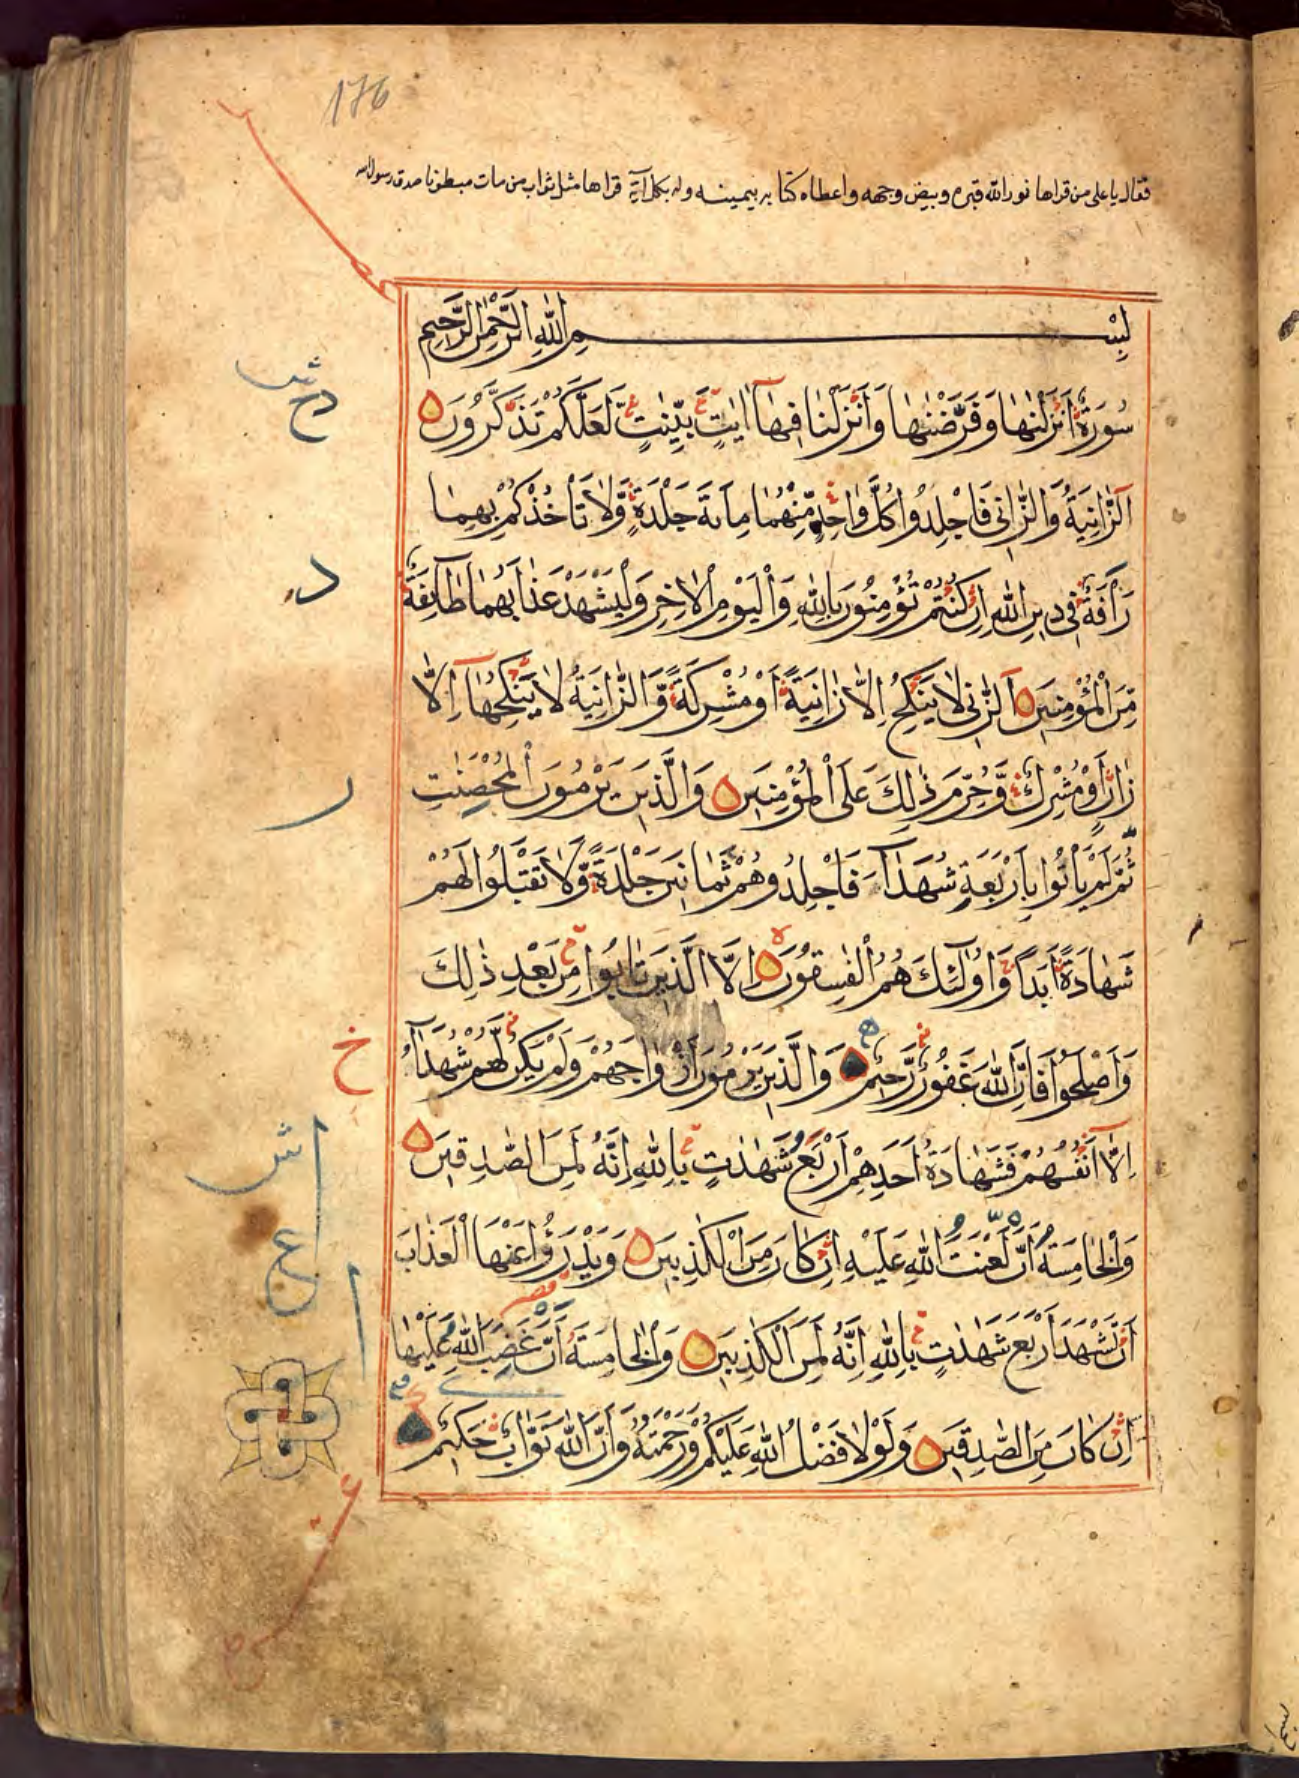 176
فقال يا على من قراها نور الله قبره وبيض وجهه واعطاه كتابه بيمينه وله بكل آية قراها مثل ثواب من مات مبطونا صدق رسول الله
بِسْمِ اللّٰهِ الرَّحْمٰنِ الرَّحِيمِ
سُورَةٌ اَنْزَلْنٰهَا وَفَرَّضْنٰهَا وَاَنْزَلْنَا فِيهَآ اٰيٰتٍ بَيِّنٰتٍ لَّعَلَّكُمْ تَذَّكَّرُونَ
دخش
اَلزَّانِيَةُ وَالزَّانِى فَاجْلِدُوا كُلَّ وَاحِدٍ مِّنْهُمَا مِائَةَ جَلْدَةٍ وَّلَا تَأْخُذْكُمْ بِهِمَا
رَأْفَةٌ فِى دِينِ اللّٰهِ اِنْ كُنْتُمْ تُؤْمِنُونَ بِاللّٰهِ وَالْيَوْمِ الْاٰخِرِ وَلْيَشْهَدْ عَذَابَهُمَا طَآئِفَةٌ
د
مِّنَ الْمُؤْمِنِينَ اَلزَّانِى لَا يَنْكِحُ اِلَّا زَانِيَةً اَوْ مُشْرِكَةً وَّالزَّانِيَةُ لَا يَنْكِحُهَآ اِلَّا
زَانٍ اَوْ مُشْرِكٌ وَّحُرِّمَ ذٰلِكَ عَلَى الْمُؤْمِنِينَ وَالَّذِينَ يَرْمُونَ الْمُحْصِنٰتِ
ر
ثُمَّ لَمْ يَأْتُوا بِاَرْبَعَةِ شُهَدَآءَ فَاجْلِدُوهُمْ ثَمَانِينَ جَلْدَةً وَّلَا تَقْبَلُوا لَهُمْ
شَهَادَةً اَبَدًا وَاُولٰٓئِكَ هُمُ الْفٰسِقُونَ اِلَّا الَّذِينَ تَابُوا مِنْ بَعْدِ ذٰلِكَ
وَاَصْلَحُوا فَاِنَّ اللّٰهَ غَفُورٌ رَّحِيمٌ وَالَّذِينَ يَرْمُونَ اَزْوَاجَهُمْ وَلَمْ يَكُنْ لَّهُمْ شُهَدَآءُ
خ
اِلَّآ اَنْفُسُهُمْ فَشَهَادَةُ اَحَدِهِمْ اَرْبَعُ شَهٰدٰتٍ بِاللّٰهِ اِنَّهُ لَمِنَ الصّٰدِقِينَ
ش
وَالْخَامِسَةُ اَنَّ لَعْنَتَ اللّٰهِ عَلَيْهِ اِنْ كَانَ مِنَ الْكٰذِبِينَ وَيَدْرَؤُا عَنْهَا الْعَذَابَ
ع
اَنْ تَشْهَدَ اَرْبَعَ شَهٰدٰتٍ بِاللّٰهِ اِنَّهُ لَمِنَ الْكٰذِبِينَ وَالْخَامِسَةُ اَنَّ غَضَبَ اللّٰهِ عَلَيْهَا
اِنْ كَانَ مِنَ الصّٰدِقِينَ وَلَوْلَا فَضْلُ اللّٰهِ عَلَيْكُمْ وَرَحْمَتُهُ وَاَنَّ اللّٰهَ تَوَّابٌ حَكِيمٌ